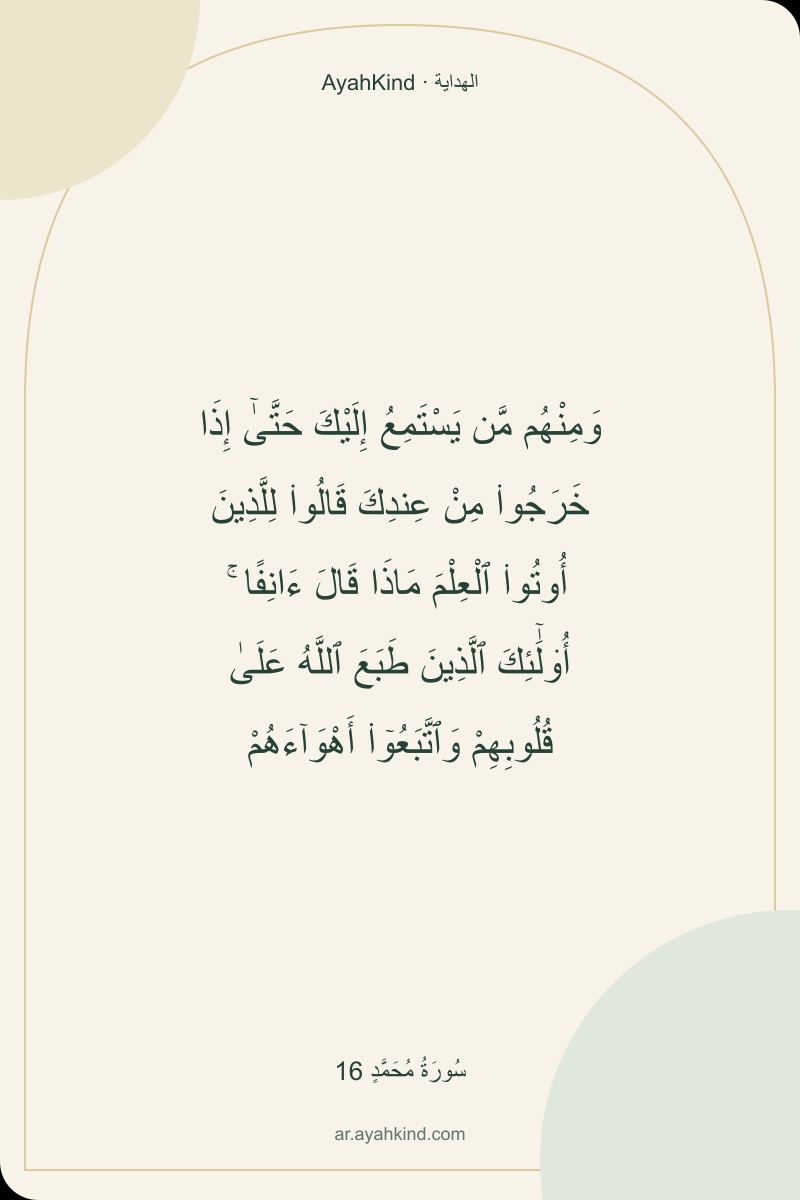 الهداية · AyahKind
وَمِنْهُم مَّن يَسْتَمِعُ إِلَيْكَ حَتَّىٰٓ إِذَا
خَرَجُوا۟ مِنْ عِندِكَ قَالُوا۟ لِلَّذِينَ
أُوتُوا۟ ٱلْعِلْمَ مَاذَا قَالَ ءَانِفًا ۚ
أُو۟لَٰٓئِكَ ٱلَّذِينَ طَبَعَ ٱللَّهُ عَلَىٰ
قُلُوبِهِمْ وَٱتَّبَعُوٓا۟ أَهْوَآءَهُمْ
سُورَةُ مُحَمَّدٍ 16
ar.ayahkind.com